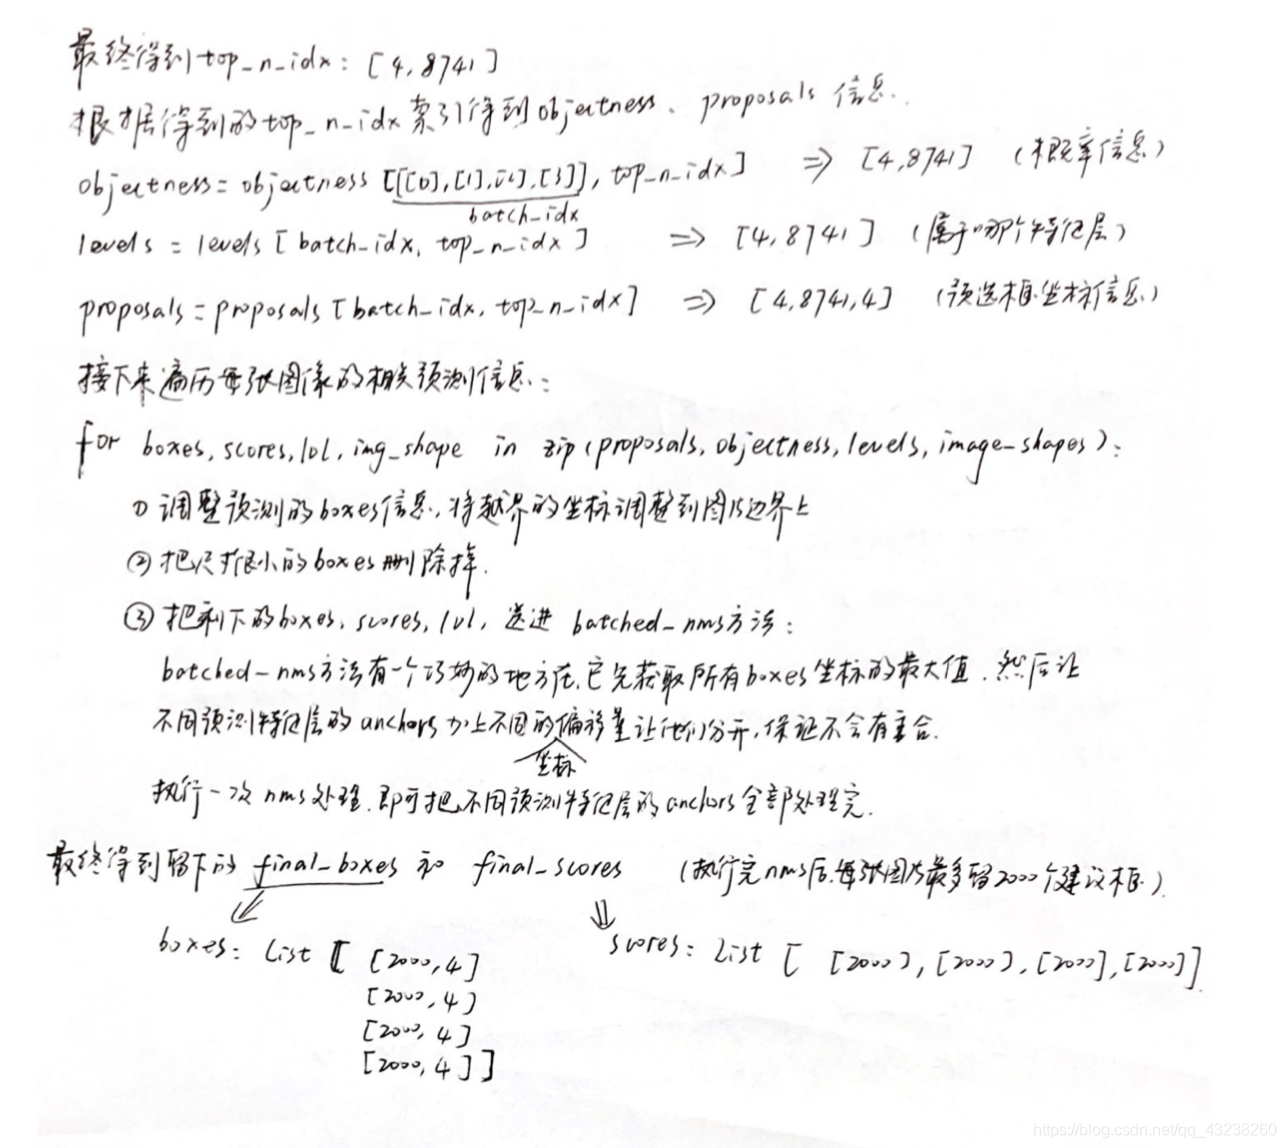 最终得到top_n_idx: [4,8741]
根据得到的top_n_idx索引得到objectness、proposals 信息.
objectness = objectness [[[0],[1],[2],[3]], top_n_idx] ⇒ [4,8741] (概率信息)
batch_idx
levels = levels [batch_idx, top_n_idx] ⇒ [4,8741] (属于哪个特征层)
proposals = proposals [batch_idx, top_n_idx] ⇒ [4,8741,4] (预选框坐标信息)
接下来遍历每张图像的相关预测信息:
for boxes, scores, lvl, img_shape in zip(proposals, objectness, levels, image_shapes):
① 调整预测的boxes信息,将越界的坐标调整到图片边界上
② 把尺寸很小的boxes删除掉.
③ 把剩下的boxes, scores, lvl, 送进 batched_nms方法:
batched_nms方法有一个巧妙的地方在,它先获取所有boxes坐标的最大值,然后让
不同预测特征层的anchors加上不同的偏移量让他们分开,保证不会有重合.
坐标
执行一次nms处理,即可把不同预测特征层的anchors全部处理完.
最终得到留下的 final_boxes 和 final_scores (执行完nms后,每张图片最多留2000个建议框).
boxes: List [ [2000,4] scores: List [ [2000], [2000], [2000], [2000]]
[2000,4]
[2000,4]
[2000,4]]
https://blog.csdn.net/qq_43238260